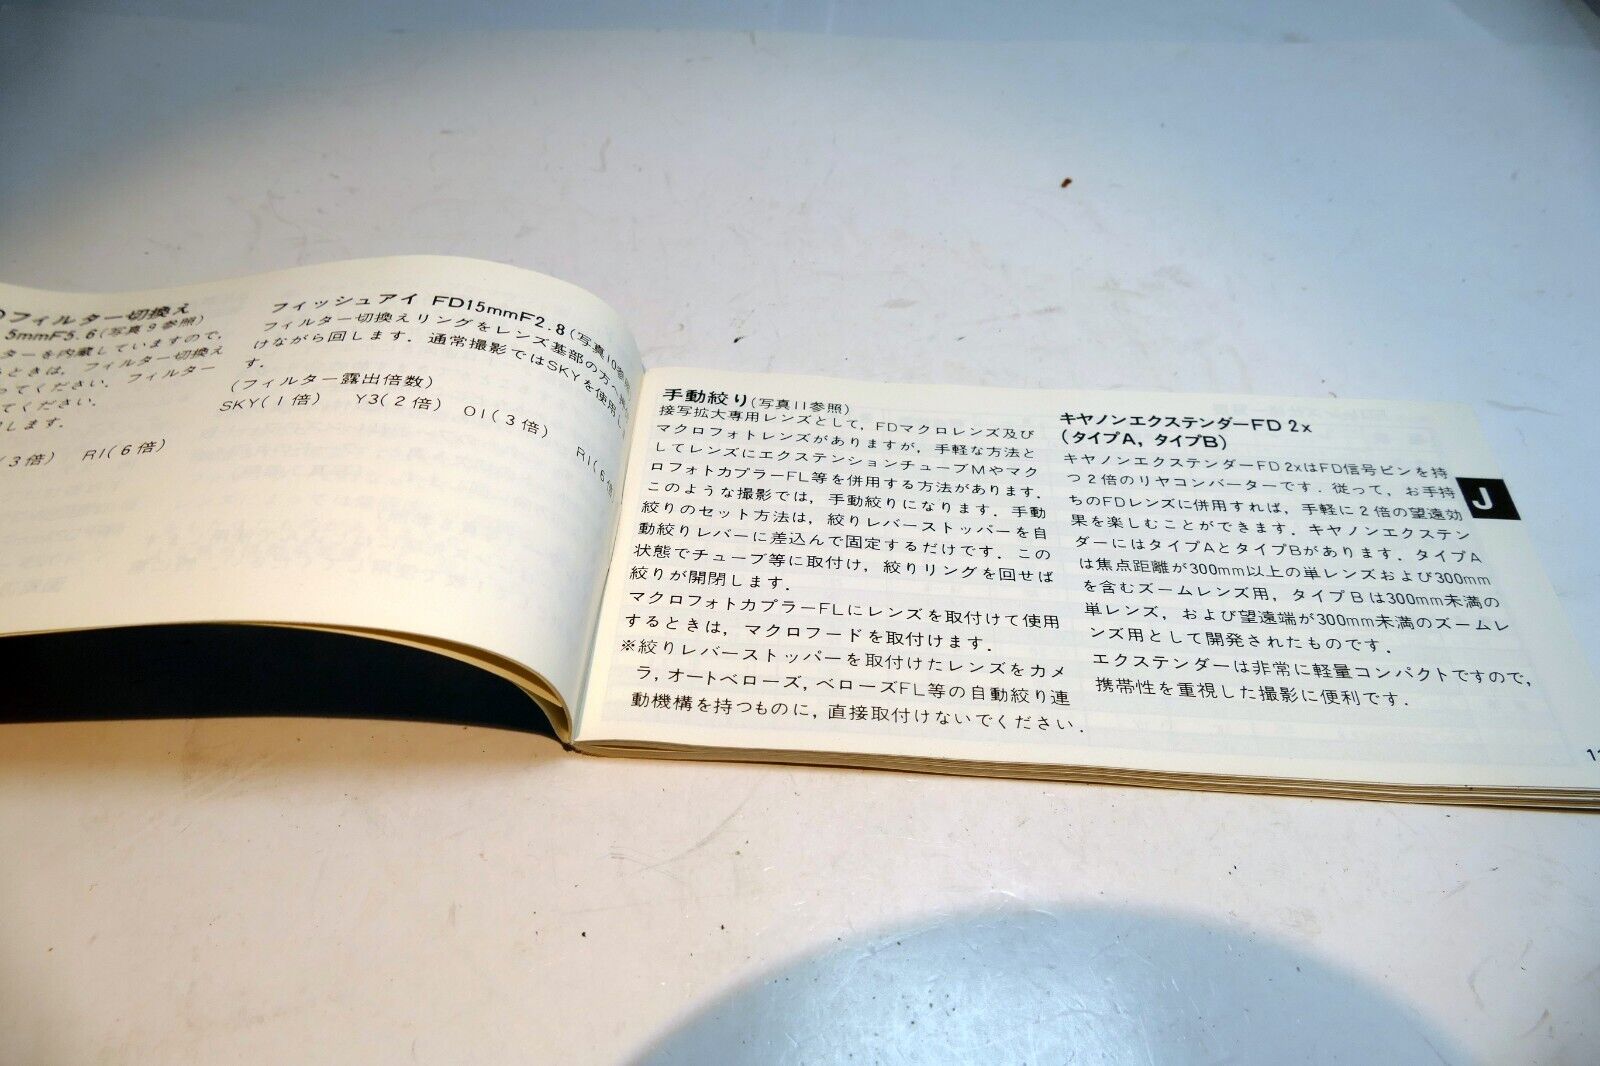 フィルター切換え
5mmF5.6(写真9参照)
ターを内蔵していますので,
るときは, フィルター切換え
ってください. フィルター
てください.
します.
(3倍) R1(6倍)
フィッシュアイ FD15mmF2.8(写真10参照
フィルター切換えリングをレンズ基部の方へ
けながら回します. 通常撮影ではSKYを使用し
す.
(フィルター露出倍数)
SKY(1倍) Y3(2倍) O1(3倍) R1(6倍
手動絞り(写真11参照)
接写拡大専用レンズとして, FDマクロレンズ及び
マクロフォトレンズがありますが, 手軽な方法と
してレンズにエクステンションチューブMやマク
ロフォトカプラーFL等を併用する方法があります.
このような撮影では, 手動絞りになります. 手動
絞りのセット方法は, 絞りレバーストッパーを自
動絞りレバーに差込んで固定するだけです. この
状態でチューブ等に取付け, 絞りリングを回せば
絞りが開閉します.
マクロフォトカプラーFLにレンズを取付けて使用
するときは, マクロフードを取付けます.
※絞りレバーストッパーを取付けたレンズをカメ
ラ, オートベローズ, ベローズFL等の自動絞り連
動機構を持つものに, 直接取付けないでください.
キヤノンエクステンダーFD 2x
(タイプA, タイプB)
キヤノンエクステンダーFD 2xはFD信号ピンを持
つ2倍のリヤコンバーターです. 従って, お手持
ちのFDレンズに併用すれば, 手軽に2倍の望遠効
果を楽しむことができます. キヤノンエクステン
ダーにはタイプAとタイプBがあります. タイプA
は焦点距離が300mm以上の単レンズおよび300mm
を含むズームレンズ用, タイプBは300mm未満の
単レンズ, および望遠端が300mm未満のズームレ
ンズ用として開発されたものです.
エクステンダーは非常に軽量コンパクトですので,
携帯性を重視した撮影に便利です.
J